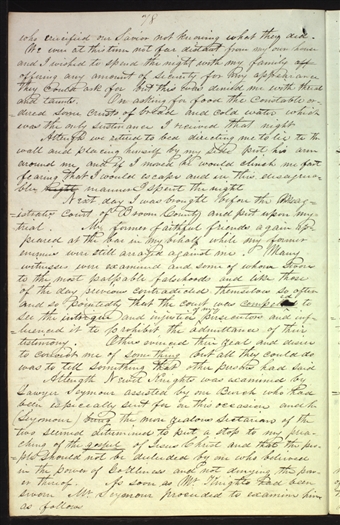 78
who crucified our Savior not knowing what they did.
We were at this time not far distant from my own house
and I wished to spend the night with my family
offering any amount of security for my appearance
they could ask for but this was denied me with threats
and taunts. On asking for food the Constable or-
dered some crusts of bread and cold water which
was the only sustenance I received that night.
After we retired to bed directing me to lie to the
wall and placing himself by my side put his arm
around me and if I moved he would clinch me fast
fearing that I would escape and in this disagreea-
ble manner I spent the night
Next day I was brought before the Mag-
-istrates Court of Broom County and put upon my
trial. My former faithful friends again ap-
peared at the bar in my behalf while my former
enemies were still arrayed against me. Many
witnesses were examined and some of whom swore
to the most palpable falsehood and like those
of the day previous contradicted themselves so often
and so pointedly that the court was compelled to
see the intrigue and injustice of my persecutors and inf-
luenced it to prohibit the admittance of their
testimony. Others evinced their zeal and desire
to convict me of something but all they could do
was to tell something that other persons had said
At length Newel Knights was examined by
Lawyer Seymour assisted by one Burch who had
been especially sent for on this occasion and he
Seymour being the more zealous sectarian of the
two seemed determined to put a stop to my prea-
ching of the gospel of Jesus Christ and that the peo-
ple should not be deluded by me who believed
in the power of Godliness and not denying the pow-
er thereof. As soon as Mr. Knights had been
sworn Mr Seymour proceeded to examine him
as follows